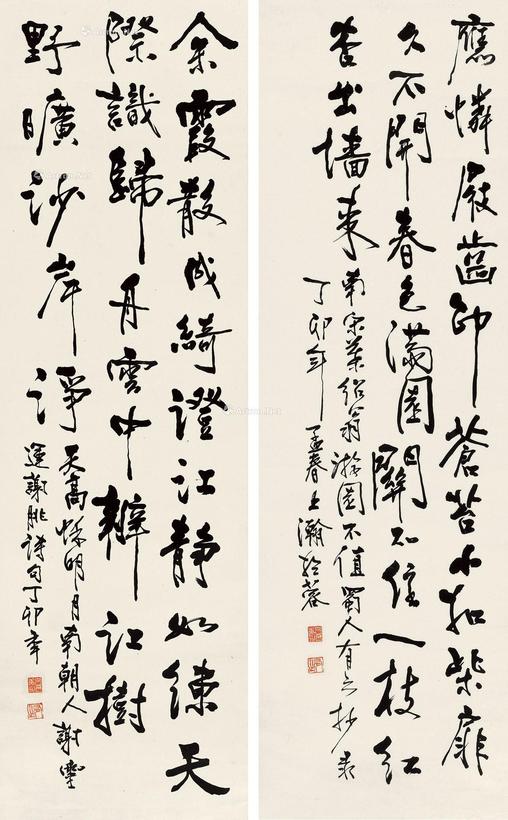 應憐屐齒印蒼苔小扣柴扉
久不開春色滿園關不住一枝紅
杏出墻來南宋葉紹翁游園不值蜀人有之抄录
丁卯年孟春上瀚於蓉
余霞散成綺澄江靜如練天
際識歸舟雲中辨江樹
野曠沙岸淨天高秋明月南朝人謝靈
運謝朓詩句丁卯年